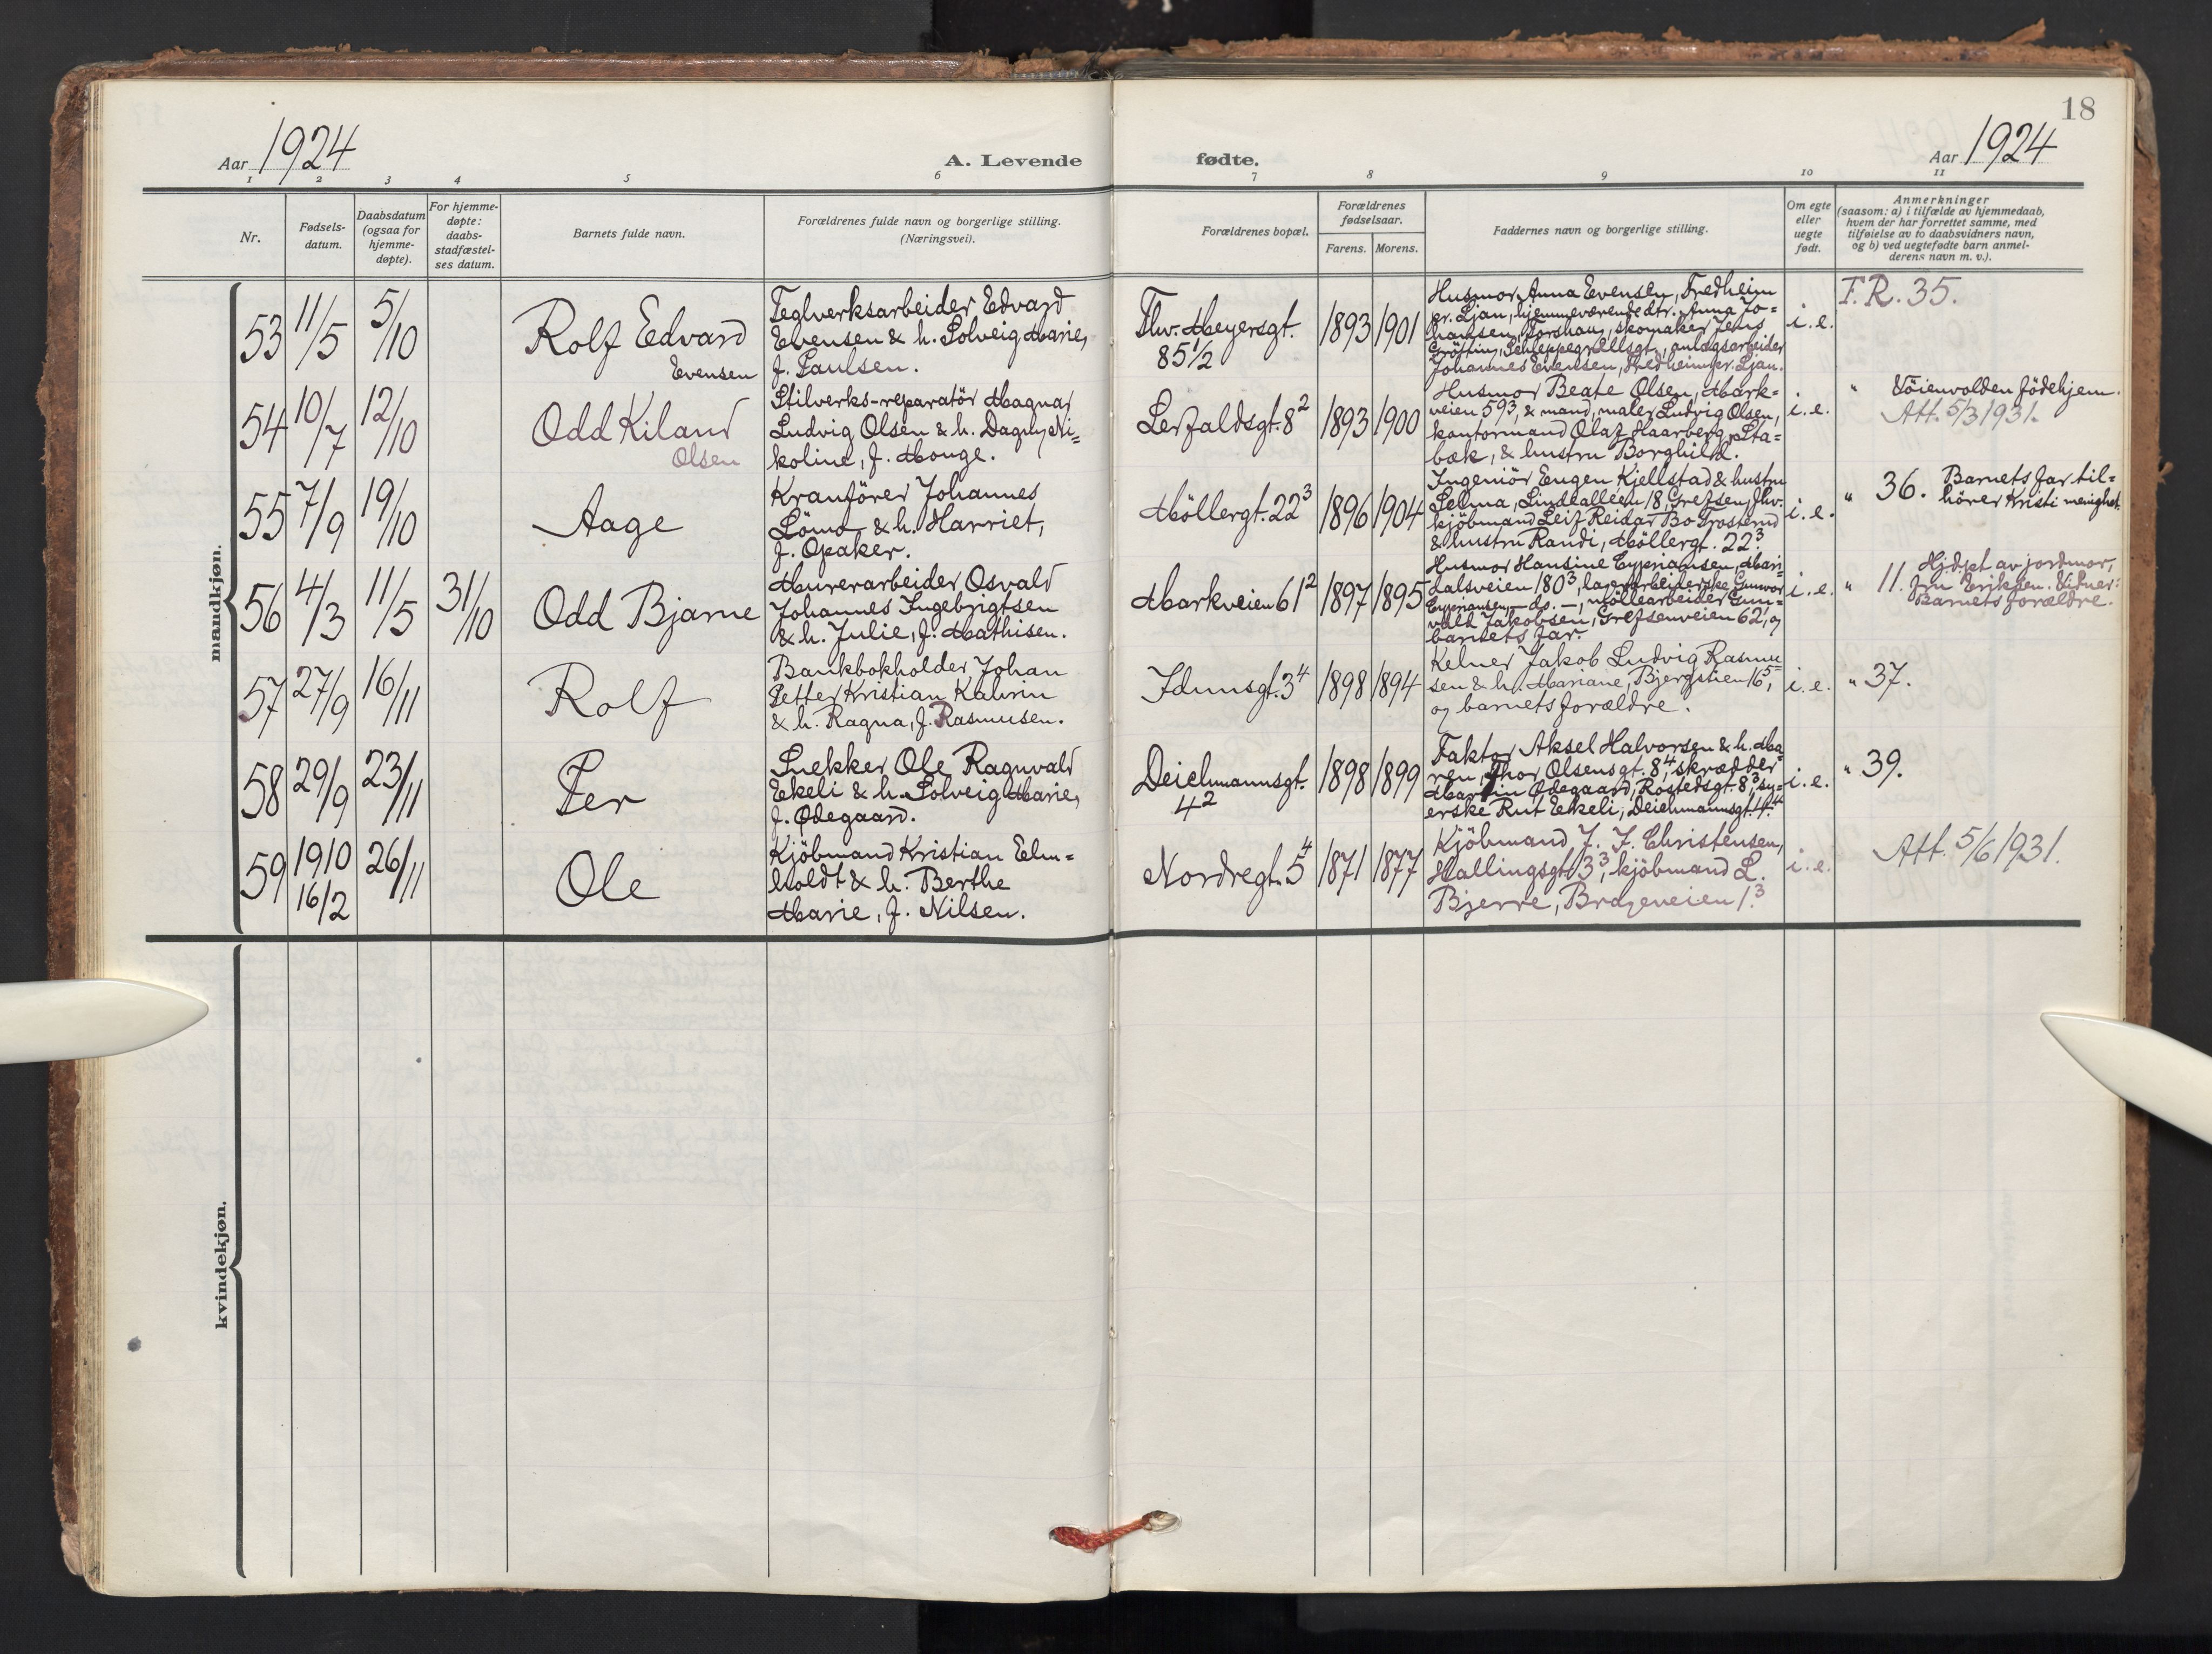 18
Aar 1924
A. Levende
fødte.
Aar 1924
1 2 3 4 5 6 7 8 9 10 11
Nr.
Fødsels-
datum.
Daabsdatum
(ogsaa for
hjemme-
døpte).
For hjemme-
døpte:
daabs-
stadfæstel-
ses datum.
Barnets fulde navn.
Forældrenes fulde navn og borgerlige stilling.
(Næringsvei).
Forældrenes bopæl.
Forældrenes
fødselsaar.
Farens. Morens.
Faddernes navn og borgerlige stilling.
Om egte
eller
uegte
født.
Anmerkninger
(saasom: a) i tilfælde av hjemmedaab,
hvem der har forrettet samme, med
tilføielse av to daabsvidners navn,
og b) ved uegtefødte barn anmel-
derens navn m. v.).
mandkjøn.
53 11/5 5/10
Rolf Edvard
Evensen
Teglverksarbeider Edvard
Evensen & h. Solveig Marie,
f. Paulsen.
Thv. Meyersgt.
85 1/2
1893 1901
Husmor Anna Evensen, Fredheim
pr. Ljan, hjemmeværende dtr. Anna Jo-
hansen, skomaker Jens
Schleppegrellsgt., anlægsarbeider
Johannes Evensen, Fredheim pr. Ljan.
i. e.
F. R. 35.
54 10/7 12/10
Odd Kiland
Olsen
Stilverks-reparatör Magnar
Ludvig Olsen & h. Dagny Ni=
koline, f. Mouge.
Lerfaldsgt. 8²
1893 1900
Husmor Beate Olsen, Mark=
veien 59³, & mand, maler Ludvig Olsen,
kontormand Olaf Haarberg, Sta=
bæk, & hustru Borghild.
i. e.
" Vöienvolden födehjem.
Att. 5/3 1931.
55 7/9 19/10
Aage
Kranförer Johannes
Lömo & h. Harriet,
f. Opaker.
Möllergt. 22³
1896 1904
Ingeniör Eugen Kjellstad & hustru
Selma, Lindealleen 18, Grefsen, fhv.
kjöbmand Leif Reidar Bo Trosterud
& hustru Randi, Möllergt. 22³.
i. e.
" 36. Barnets far til=
hörer Kristi menighet.
56 4/3 11/5 31/10
Odd Bjarne
Murerarbeider Osvald
Johannes Ingebrigtsen
& h. Julie, f. Mathisen.
Markveien 61²
1897 1895
Husmor Hansine Cyprianusen, Mari=
dalsveien 180³, lagerarbeiderske Gunvor
Cyprianusen, - do. -, möllearbeider Gun=
vald Jakobsen, Grefsenveien 62, og
barnets far.
i. e.
" 11. Hjdpt. av jordmor,
fru Eriksen. Vidner:
Barnets forældre.
57 27/9 16/11
Rolf
Bankbokholder Johan
Petter Kristian Kahrin
& h. Ragna, f. Rasmusen.
Idunsgt. 3⁴
1898 1894
Kelner Jakob Ludvig Rasmu
sen & h. Mariane, Bjergstien 16⁵,
og barnets forældre.
i. e.
" 37.
58 29/9 23/11
Per
Snekker Ole Ragnvald
Ekeli & h. Solveig Marie,
f. Ødegaard.
Deichmannsgt.
4²
1898 1899
Faktor Aksel Halvorsen & h. Ma
ren, Thor Olsensgt. 8⁴, skrædder
Martin Ødegaard, Rostedsgt. 8³, sy=
erske Rut Ekeli, Deichmannsgt. 4.⁴
i. e.
" 39.
59 1910 16/2 26/11
Ole
Kjöbmand Kristian Elm=
holdt & h. Berthe
Marie, f. Nilsen.
Nordregt. 5⁴
1871 1877
Kjöbmand J. J. Christensen,
Hallingsgt. 3³, kjöbmand L.
Bjerre, Brageveien 1.³
i. e.
Att. 5/6 1931.
kvindekjøn.